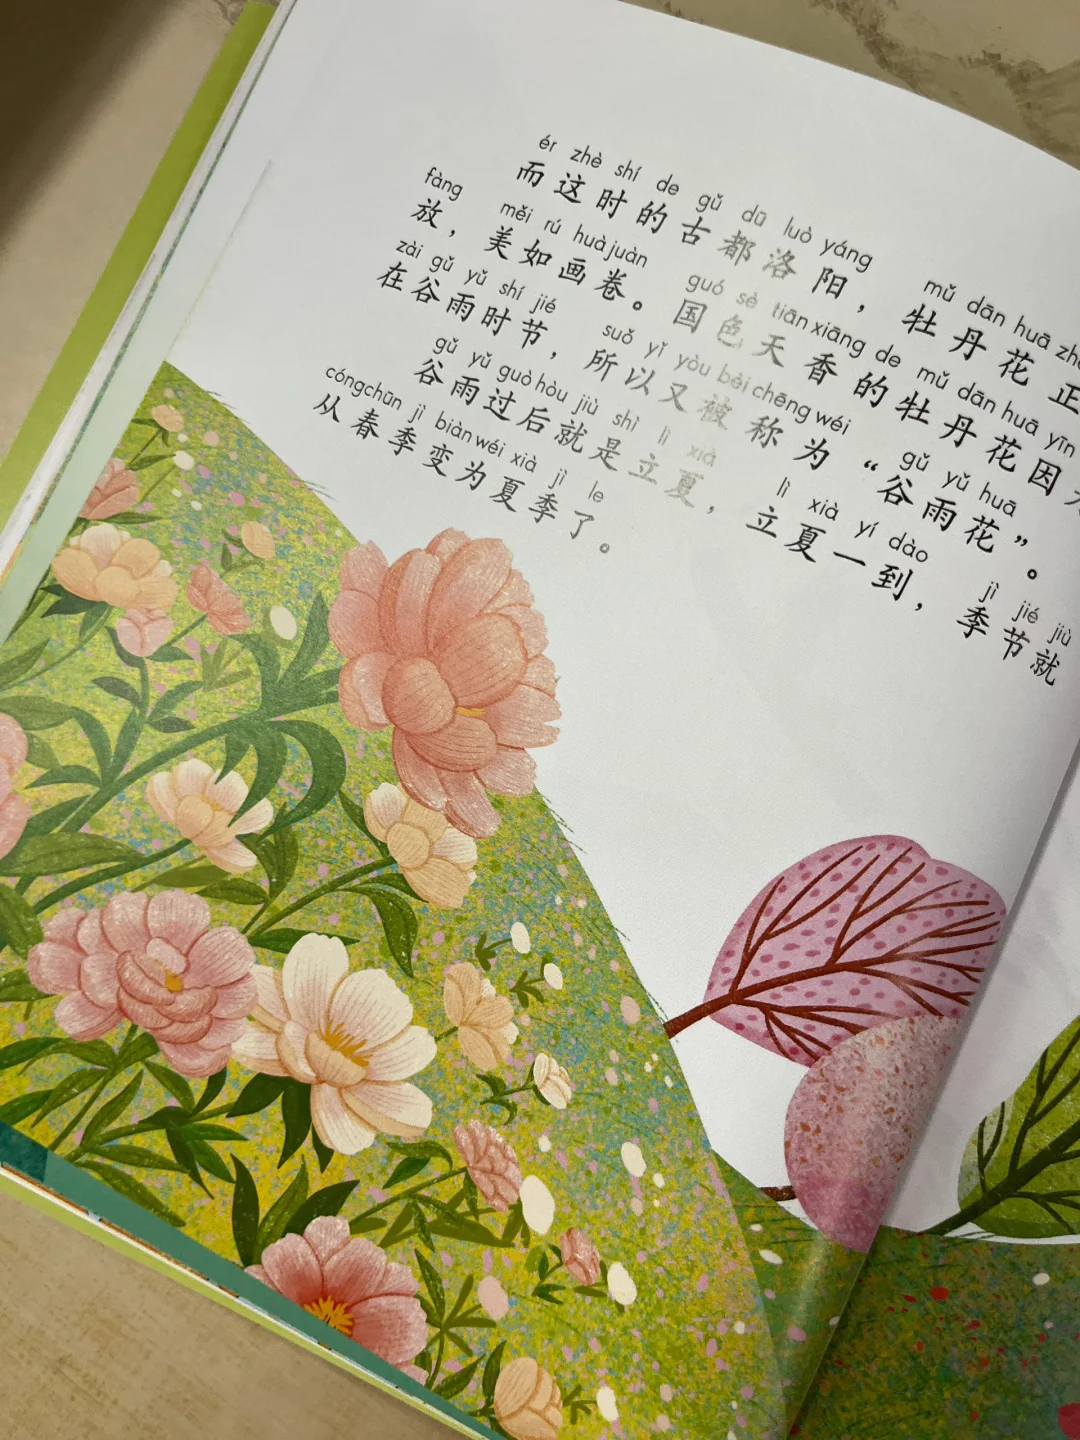 ér zhè shí de gǔ dū luò yáng mǔ dān huā
而这时的古都洛阳，牡丹花正
fàng měi rú huà juàn guó sè tiān xiāng de mǔ dān huā yīn
放，美如画卷。国色天香的牡丹花因
zài gǔ yǔ shí jié suǒ yǐ yòu bèi chēng wéi gǔ yǔ huā
在谷雨时节，所以又被称为“谷雨花”。
gǔ yǔ guò hòu jiù shì lì xià lì xià yí dào jì jié jiù
谷雨过后就是立夏，立夏一到，季节就
cóng chūn jì biàn wéi xià jì le
从春季变为夏季了。